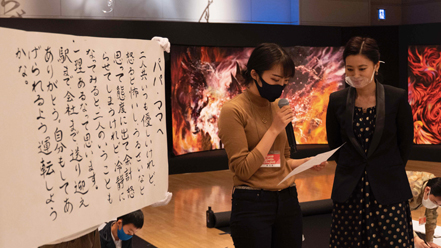 パパ、つつへ
二人共いつも優しいけれど
怒ると怖いし、うるさいなと
思って態度に出て余計怒ら
れてしまうけれど、冷静に
なってみると二人のいうことも
一理あるって思います。
駅まで、会社まで、送り迎え
ありがとう。自分もしてあ
げられるよう運転しよう
かな。